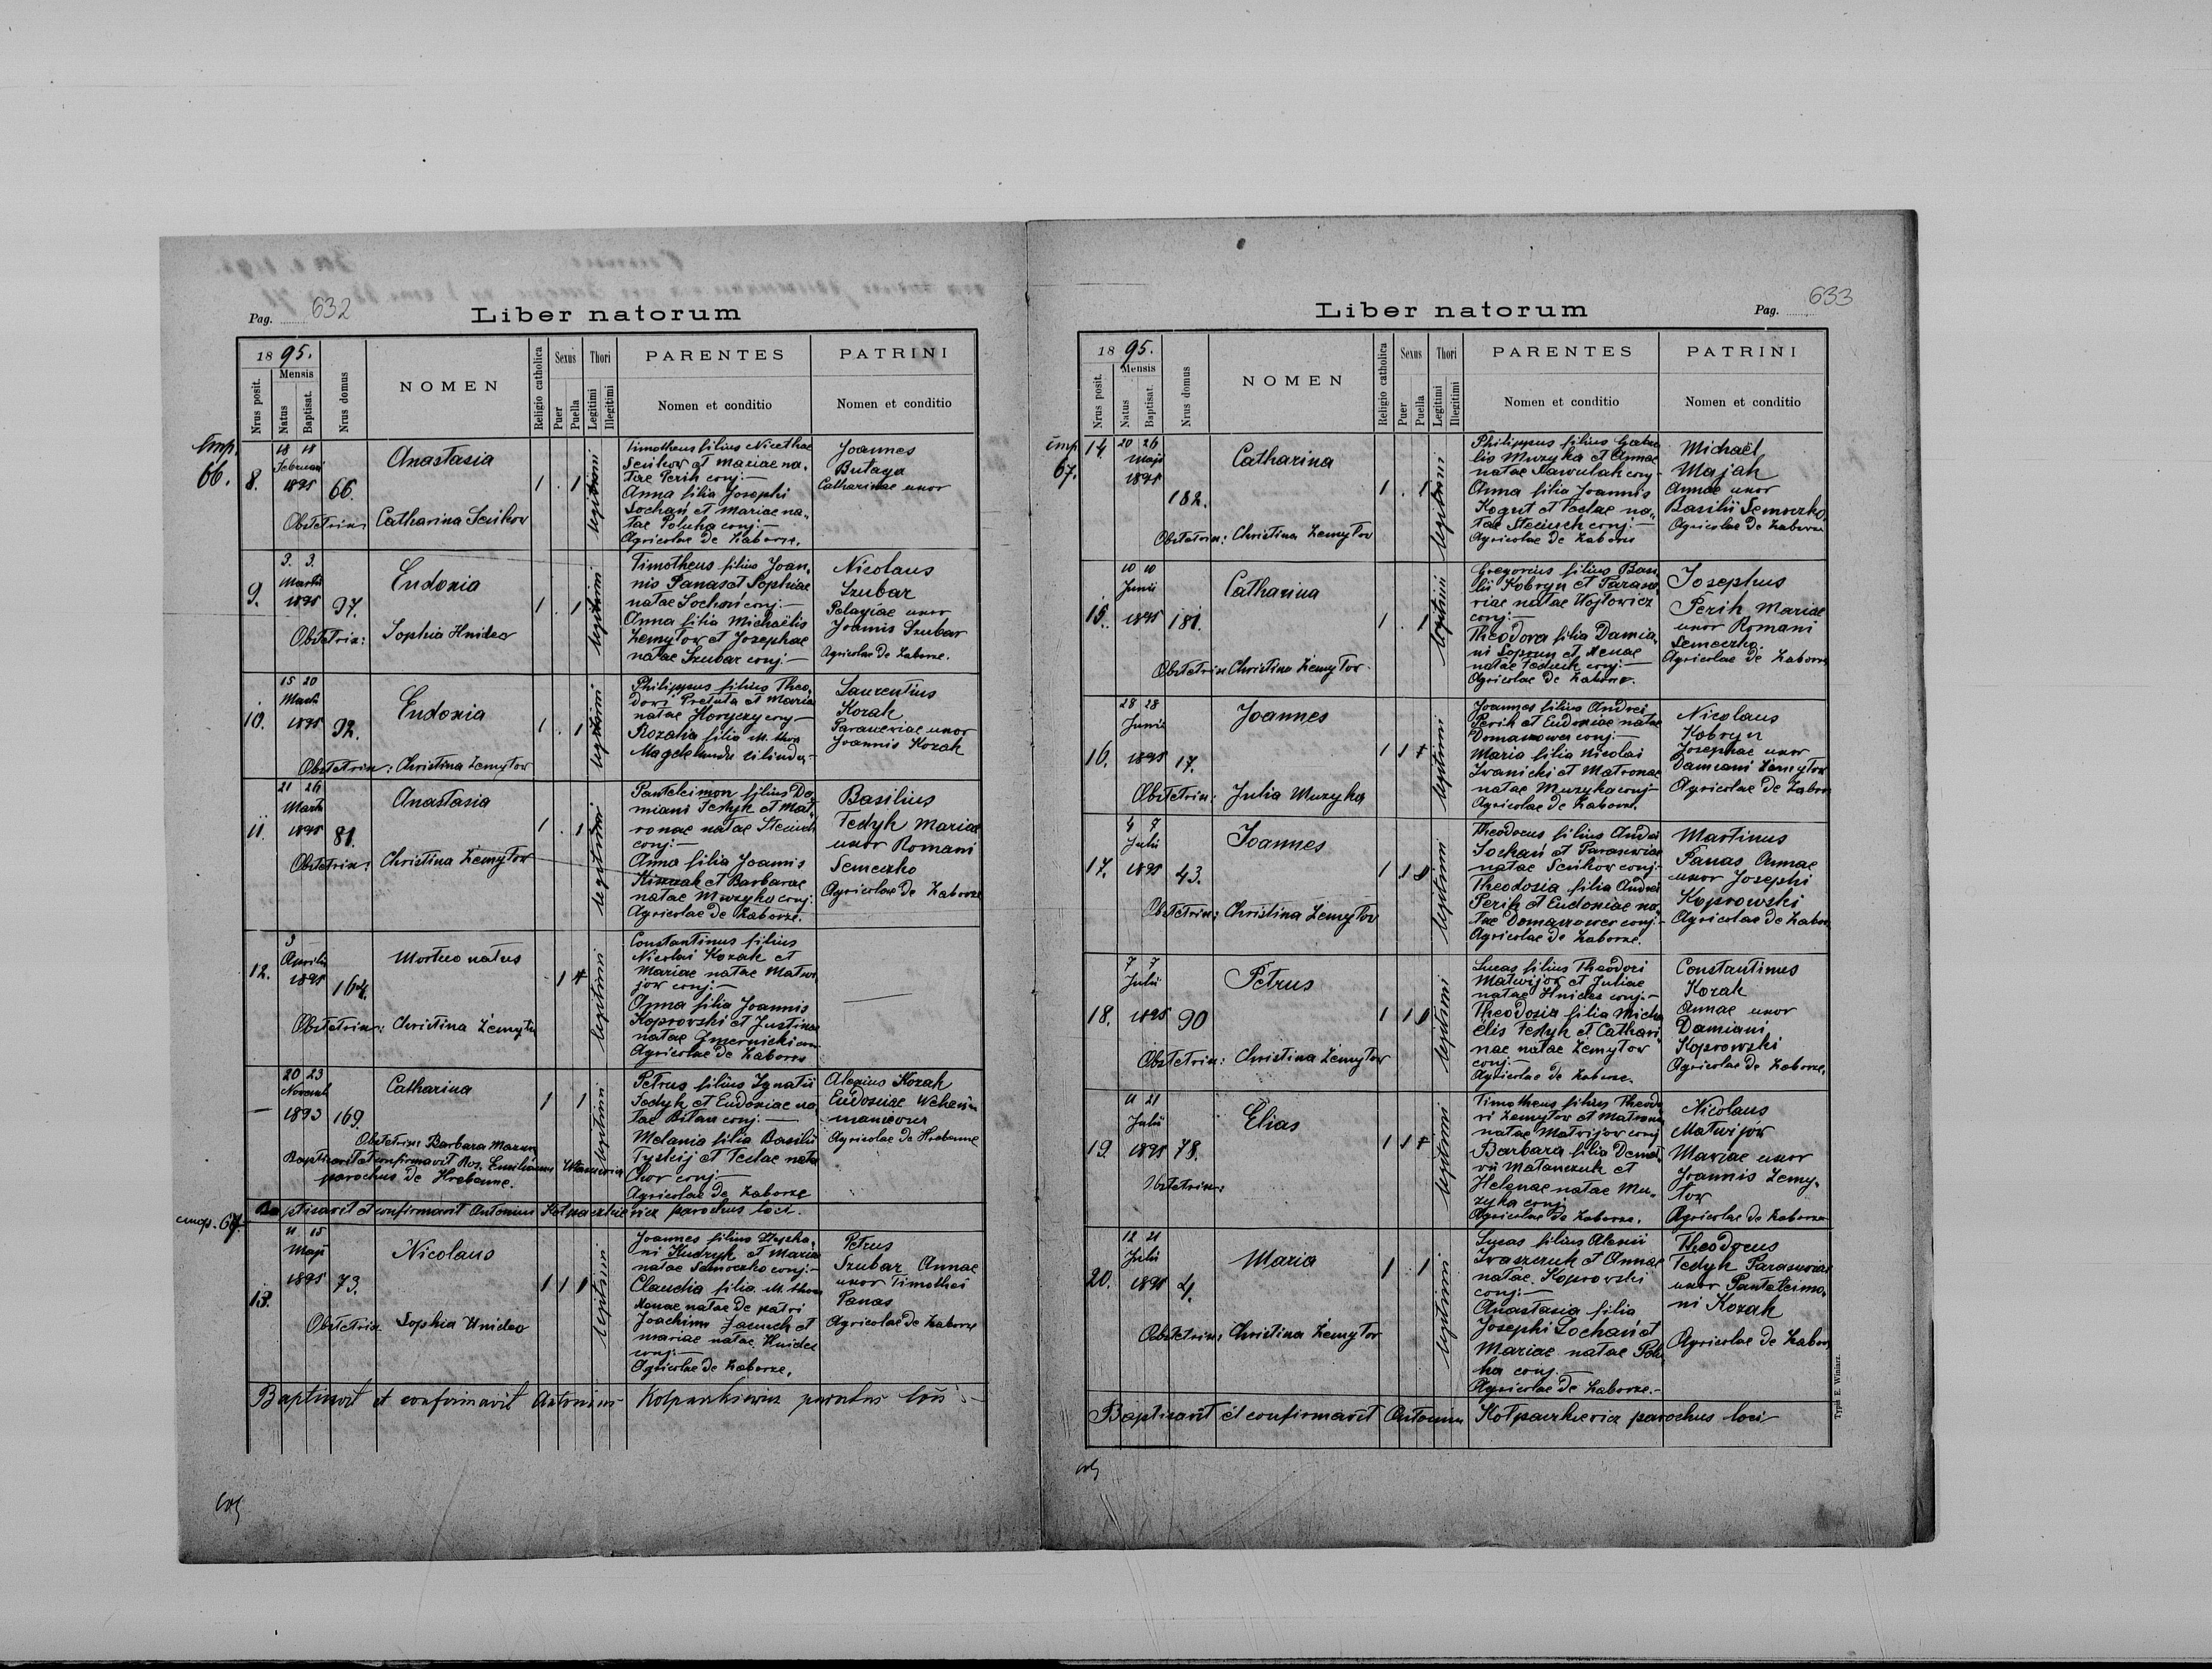 Pag. 632
Liber natorum
18 95.
Mensis
Nrus posit.
Natus
Baptisat.
Nrus domus
NOMEN
Religio catholica
Sexus
Puer
Puella
Thori
Legitimi
Illegitimi
PARENTES
Nomen et conditio
PATRINI
Nomen et conditio
66.
8.
18 18
Februarii
1895
66.
Anastasia
Obstetrix: Catharina Senkow
1 . 1
legitimi
Timotheus filius Nicethae
Senkow et Mariae na-
tae Perih conj:—
Anna filia Josephi
Sochań et Mariae na-
tae Poluha conj:—
Agricolae de Zaborze.
Joannes
Butaga
Catharinae uxor
9.
3. 3.
Martii
1895
97.
Eudoxia
Obstetrix: Sophia Hnidec
1 . 1
legitimi
Timotheus filius Joan-
nis Panas et Sophiae
natae Sochań conj:—
Anna filia Michaëlis
Zemytow et Josephae
natae Szubar conj:—
Nicolaus
Szubar
Pelagiae uxor
Joannis Szubar
Agricolae de Zaborze.
10.
15 20
Martii
1895
92.
Eudoxia
Obstetrix: Christina Zemytow
1 . 1
legitimi
Philippus filius Theo-
dori Pretuta et Maria
natae Horyczy conj—
Rozalia filia M. thori
Laurentius
Kozak
Parasceviae uxor
Joannis Kozak
11.
21 26
Martii
1895
81.
Anastasia
Obstetrix: Christina Zemytow
1 . 1
legitimi
Panteleimon filius Da-
miani Fedyk et Mat-
ronae natae Steciuch
conj:—
Anna filia Joannis
et Barbarae
natae Muzyka conj:
Agricolae de Zaborze.
Basilius
Fedyk Mariae
uxor Romani
Semeczko
Agricolae de Zaborze
12.
3
Aprilis
1895
164.
Mortuo natus
Obstetrix: Christina Zemytow
- 1
legitimi
Constantinus filius
Nicolai Kozak et
Mariae natae Matwi-
jow conj:—
Anna filia Joannis
Koprowski et Justina
natae
Agricolae de Zaborze
20 23
Novemb
1893
169.
Catharina
Obstetrix: Barbara Mazur
Baptisavit et confirmavit Emilianus
parochus de Hrebenne.
1 1
legitimi
Petrus filius Ignatii
Fedyk et Eudoxiae na-
tae Bitan conj:—
Melania filia Basilii
Tyskij et Teclae nata
Chor conj—
Agricolae de Zaborze
Alexius Kozak
Eudoxiae
Agricolae de Hrebenne
Baptisavit et confirmavit Antonius Kolpaczkiewicz parochus loci.
67.
13.
11 15
Maji
1895
73.
Nicolaus
Obstetrix Sophia Hnidec
1 1 1
legitimi
Joannes filius Stepha-
ni Kudryk et Maria
natae Semeczko conj:—
Claudia filia M. thori
natae de patri
Joachim et
Mariae natae Hnidec
conj:—
Agricolae de Zaborze.
Petrus
Szubar Annae
uxor Timothei
Panas
Agricolae de Zaborze
Baptisavit et confirmavit Antonius Kolpaczkiewicz parochus loci—
Liber natorum
Pag. 633
18 95.
Mensis
Nrus posit.
Natus
Baptisat.
Nrus domus
NOMEN
Religio catholica
Sexus
Puer
Puella
Thori
Legitimi
Illegitimi
PARENTES
Nomen et conditio
PATRINI
Nomen et conditio
67.
14
20 26
Maji
1895
182.
Catharina
Obstetrix: Christina Zemytow
1 . 1
legitimi
Philippus filius Gabrie-
lis Muzyka et Annae
natae Hawulak conj-
Anna filia Joannis
Kogut et Teclae na-
tae Steciuch conj:—
Agricolae de Zaborze
Michaël
Majak
Annae uxor
Basilii Semeczko
Agricolae de Zaborze
15.
10 10
Junii
1895
181.
Catharina
Obstetrix Christina Zemytow
1 . 1
legitimi
Gregorius filius Basi-
lii Kobryn et Parasce-
viae natae Wojtowicz
conj:—
Theodora filia Damia-
ni Soprun et
natae Feduch conj:—
Agricolae de Zaborze.
Josephus
Perih Mariae
uxor Romani
Semeczko.
Agricolae de Zaborze
16.
28 28
Junii
1895
17.
Joannes
Obstetrix: Julia Muzyka
1 1
legitimi
Joannes filius Andrei
Perih et Eudoxiae natae
Domaszowec conj:—
Maria filia Nicolai
Iwanicki et Matronae
natae Muzyka conj—
Agricolae de Zaborze.
Nicolaus
Kobryn
Josephae uxor
Damiani Zemytow
Agricolae de Zaborze
17.
4 7
Julii
1895
43.
Joannes
Obstetrix: Christina Zemytow
1 1
legitimi
Theodorus filius Andrei
Sochań et Parasceviae
natae Senkow conj:—
Theodosia filia Andrei
Perih et Eudoxiae na-
tae Domaszowec conj:—
Agricolae de Zaborze.
Martinus
Panas Annae
uxor Josephi
Koprowski
Agricolae de Zaborze
18.
7 7
Julii
1895
90
Petrus
Obstetrix: Christina Zemytow
1 1
legitimi
Lucas filius Theodori
Matwijow et Juliae
natae Hnidec conj:—
Theodosia filia Micha-
ëlis Fedyk et Cathari-
nae natae Zemytow
conj:—
Agricolae de Zaborze.
Constantinus
Kozak
Annae uxor
Damiani
Koprowski
Agricolae de Zaborze.
19.
11 21
Julii
1895
78.
Elias
Obstetrix:
1 1
legitimi
Timotheus filius Theodo-
ri Zemytow et Matrona
natae Matwijow conj
Barbara filia Demet-
rii Matanczuk et
Helenae natae Mu-
zyka conj:
Agricolae de Zaborze.
Nicolaus
Matwijów
Mariae uxor
Joannis Zemy-
tow
Agricolae de Zaborze
20.
12 21
Julii
1895
4.
Maria
Obstetrix: Christina Zemytow
1 . 1
legitimi
Lucas filius Alexii
Iwaszczuk et Annae
natae Koprowski
conj:—
Anastasia filia
Josephi Sochań et
Mariae natae Polu-
ha conj.—
Agricolae de Zaborze.—
Theodorus
Fedyk Parasceviae
uxor Panteleimo-
ni Kozak
Agricolae de Zaborze
Baptisavit et confirmavit Antonius Kolpaczkiewicz parochus loci
Typis E. Winiarz.